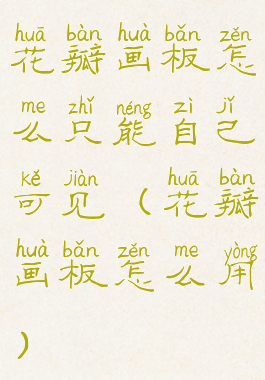 huā bàn huà bǎn zěn
花瓣画板怎
me zhǐ néng zì jǐ
么只能自己
kě jiàn huā bàn
可见(花瓣
huà bǎn zěn me yòng
画板怎么用
)